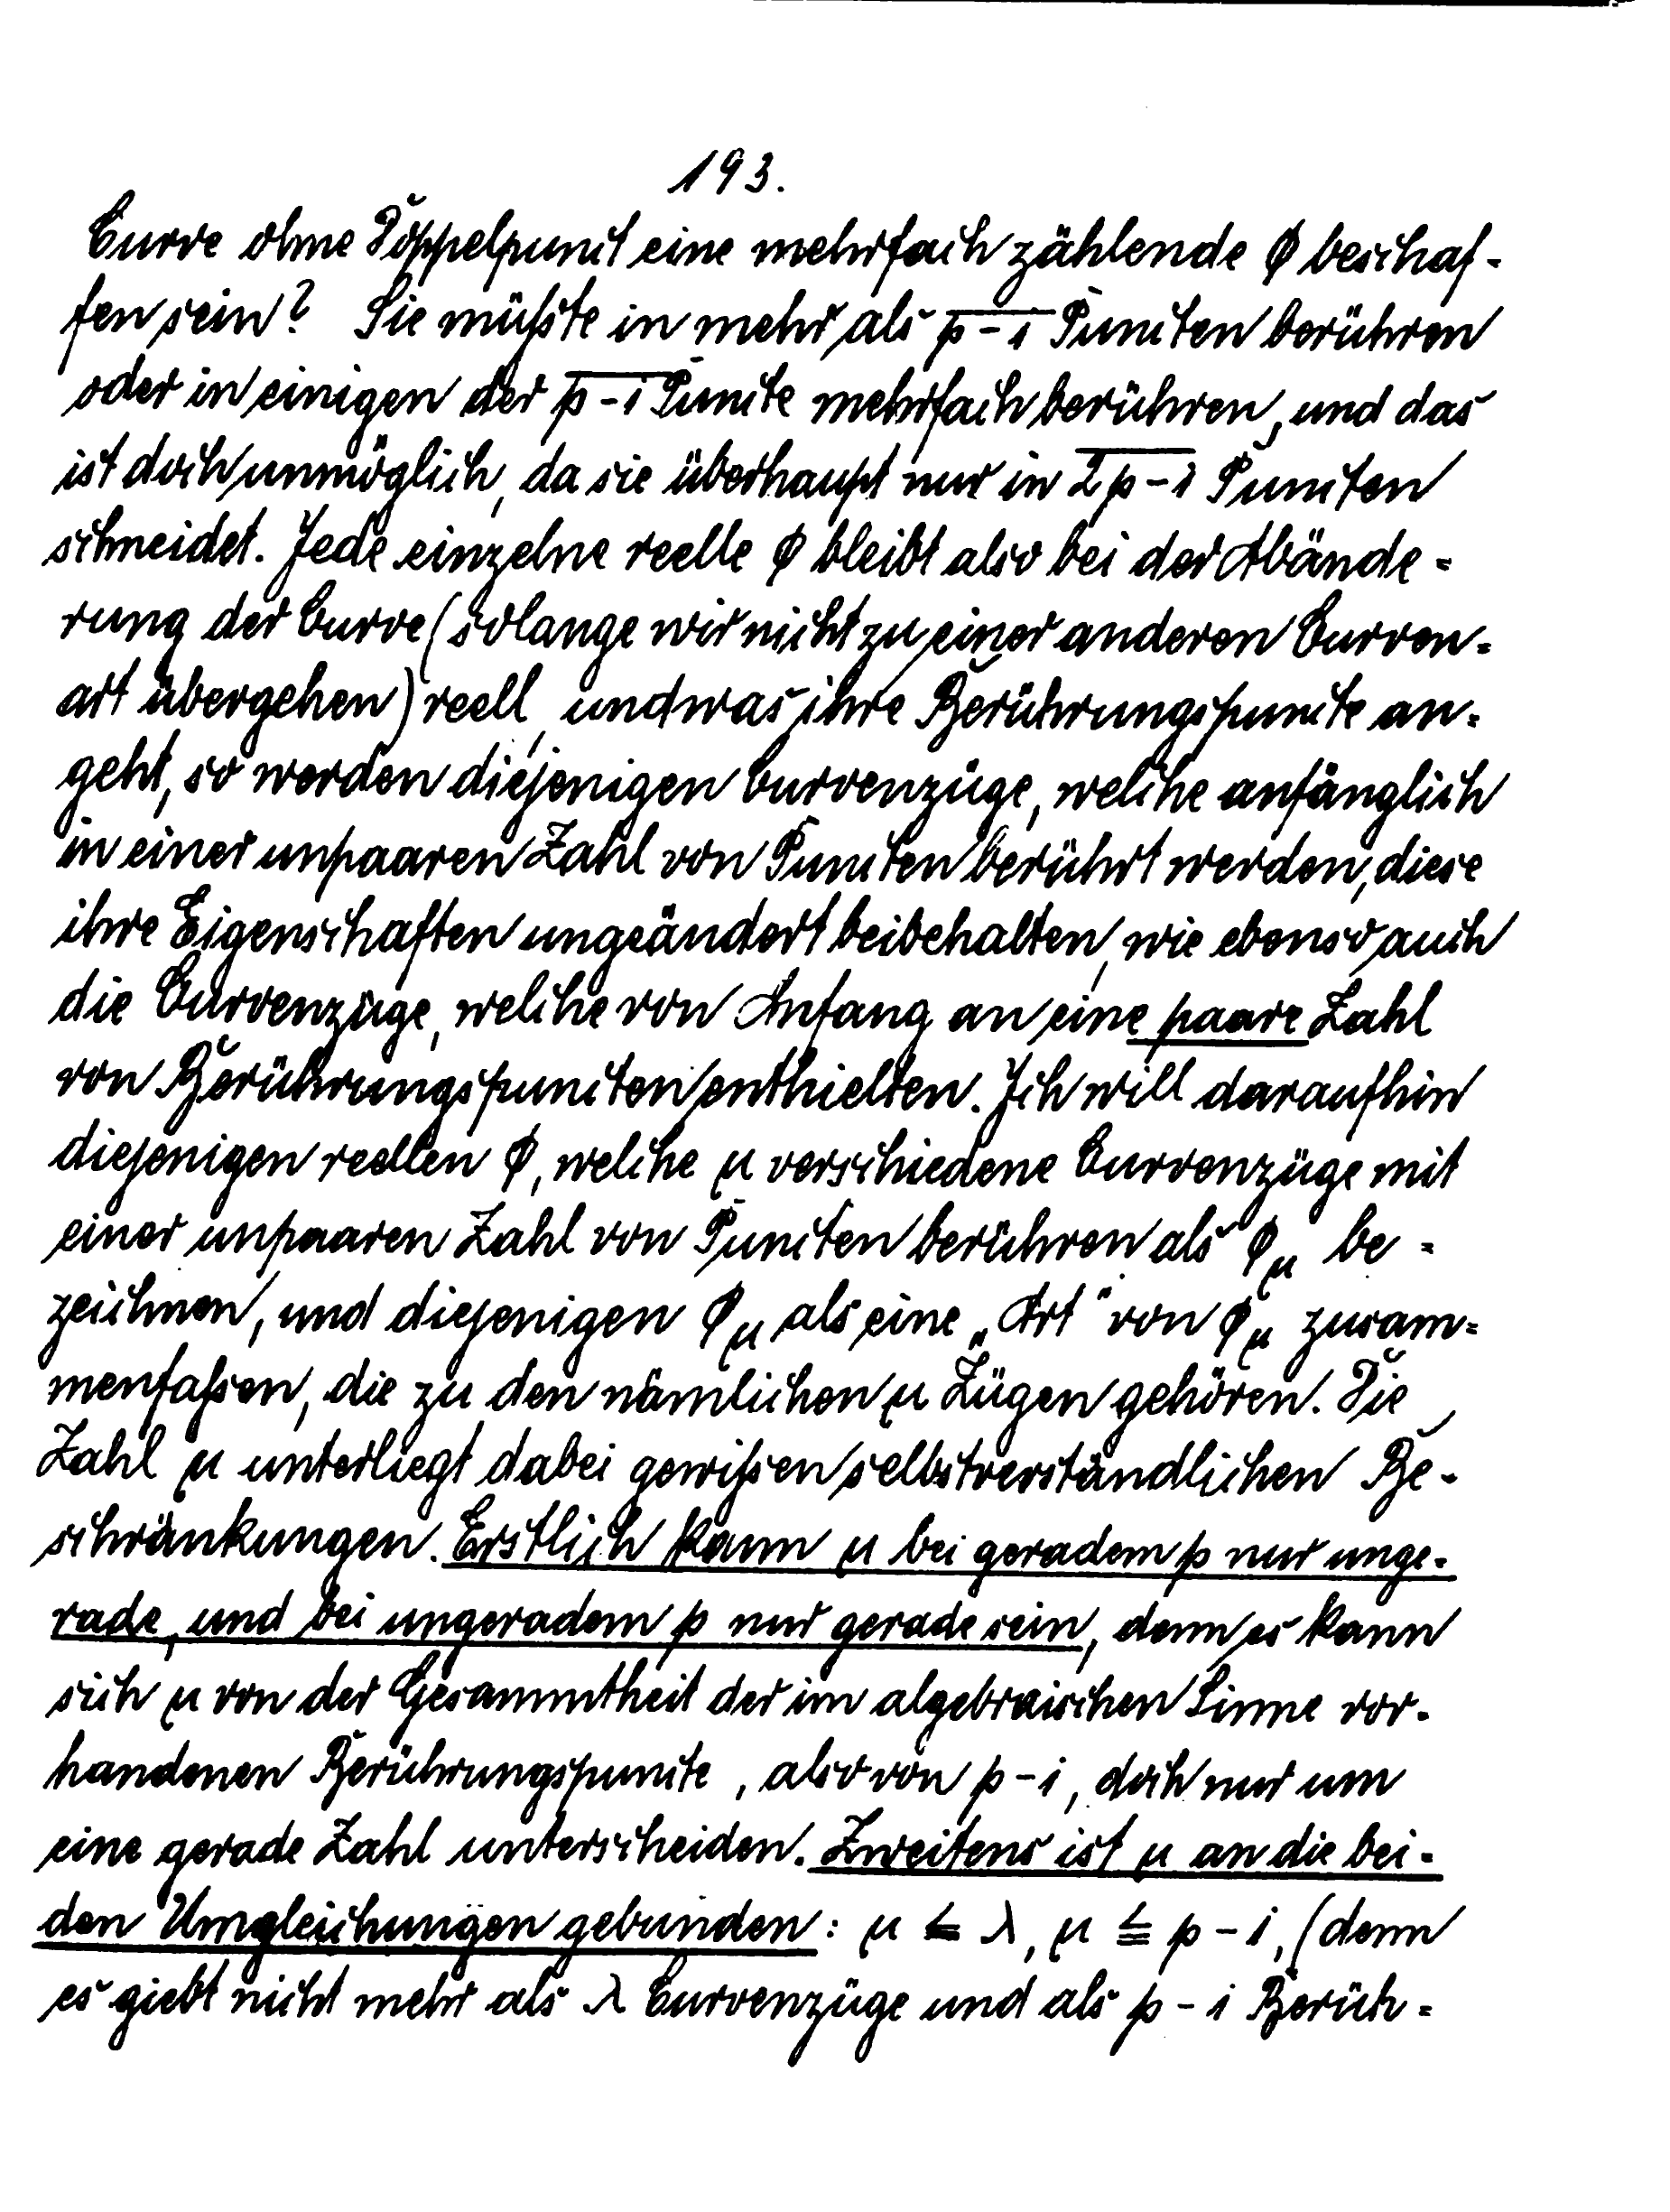 193.
Curve ohne Doppelpunct eine mehrfach zählende φ beschaf-
fen sein? Sie müßte in mehr als p-1 Puncten berühren
oder in einigen der p-1 Puncte mehrfach berühren, und das
ist doch unmöglich, da sie überhaupt nur in 2p-2 Puncten
schneidet. Jede einzelne reelle φ bleibt also bei der Abände-
rung der Curve (solange wir nicht zu einer anderen Curven-
art übergehen) reell, und was ihre Berührungspuncte an-
geht, so werden diejenigen Curvenzüge, welche anfänglich
in einer unpaaren Zahl von Puncten berührt werden, diese
ihre Eigenschaften ungeändert beibehalten, wie ebenso auch
die Curvenzüge, welche von Anfang an eine paare Zahl
von Berührungspuncten enthielten. Ich will daraufhin
diejenigen reellen φ, welche μ verschiedene Curvenzüge mit
einer unpaaren Zahl von Puncten berühren als φ_μ be-
zeichnen, und diejenigen φ_μ als eine „Art" von φ_μ zusam-
menfaßen, die zu den nämlichen μ Zügen gehören. Die
Zahl μ unterliegt dabei gewißen selbstverständlichen Be-
schränkungen. Erstlich kann μ bei geradem p nur unge-
rade, und bei ungeradem p nur gerade sein, denn es kann
sich μ von der Gesammtheit der im algebraischen Sinne vor-
handenen Berührungspuncte, also von p-1, doch nur um
eine gerade Zahl unterscheiden. Zweitens ist μ an die bei-
den Ungleichungen gebunden: μ ≦ λ, μ ≦ p-1, (denn
es giebt nicht mehr als λ Curvenzüge und als p-1 Berüh-